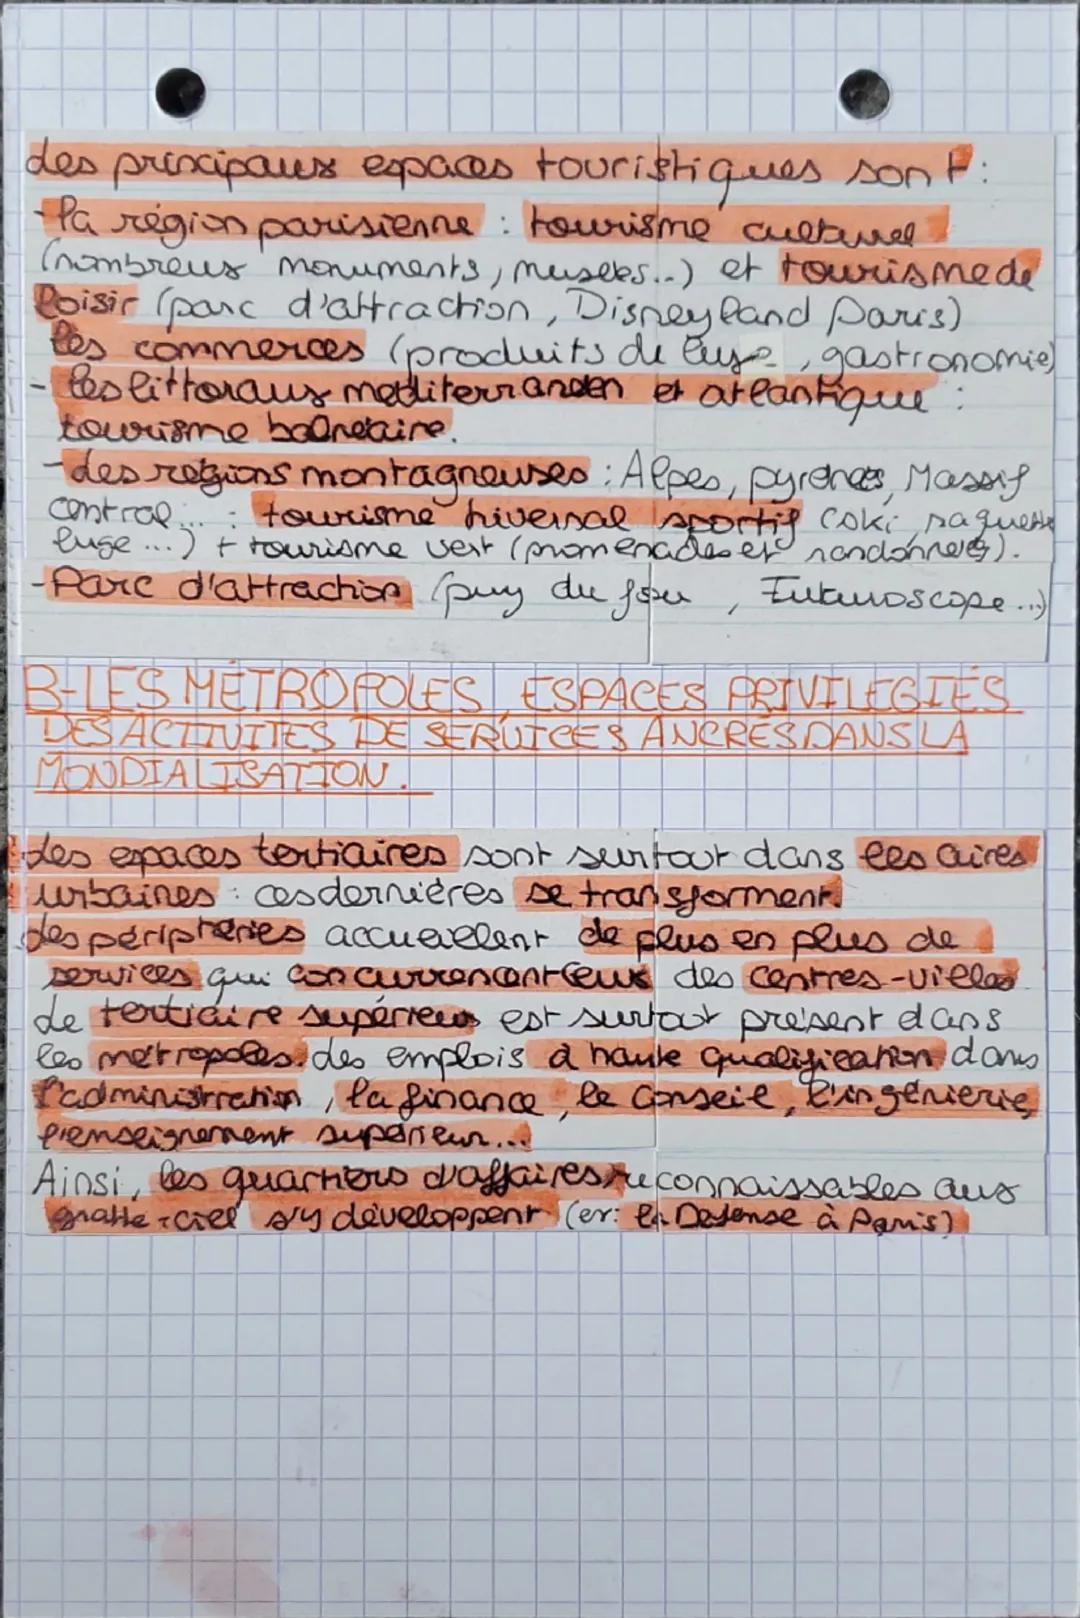 des principaux espaces touristiques sont :
- la région parisienne : tourisme culturel
(nombreux monuments, musées..) et tourisme de
loisir (parc d'attraction, Disneyland Paris)
les commerces (produits de luxe, gastronomie)
- les littoraux mediterranéen et atlantique :
tourisme balnéaire.
- des régions montagneuses : Alpes, pyrénées, Massif
central... : tourisme hivernal sportif (ski, raquette
luge ...) + tourisme vert (promenades et randonnées).
- Parc d'attraction (puy du fou, Futuroscope ...)
B-LES MÉTROPOLES, ESPACES PRIVILEGIÉS
DES ACTIVITES DE SERVICES ANCRÉS DANS LA
MONDIALISATION.
des espaces tertiaires sont surtout dans les aires
urbaines : ces dernières se transforment.
des périphéries accueillent de plus en plus de
services qui concurrencent ceux des centres-villes
de tertiaire supérieur est surtout présent dans
les métropoles. des emplois à haute qualification dans
l'administration, la finance, le conseil, l'ingénierie,
l'enseignement supérieur...
Ainsi, les quartiers d'affaires, reconnaissables aux
gratte-ciel s'y développent (ex: la Défense à Paris)